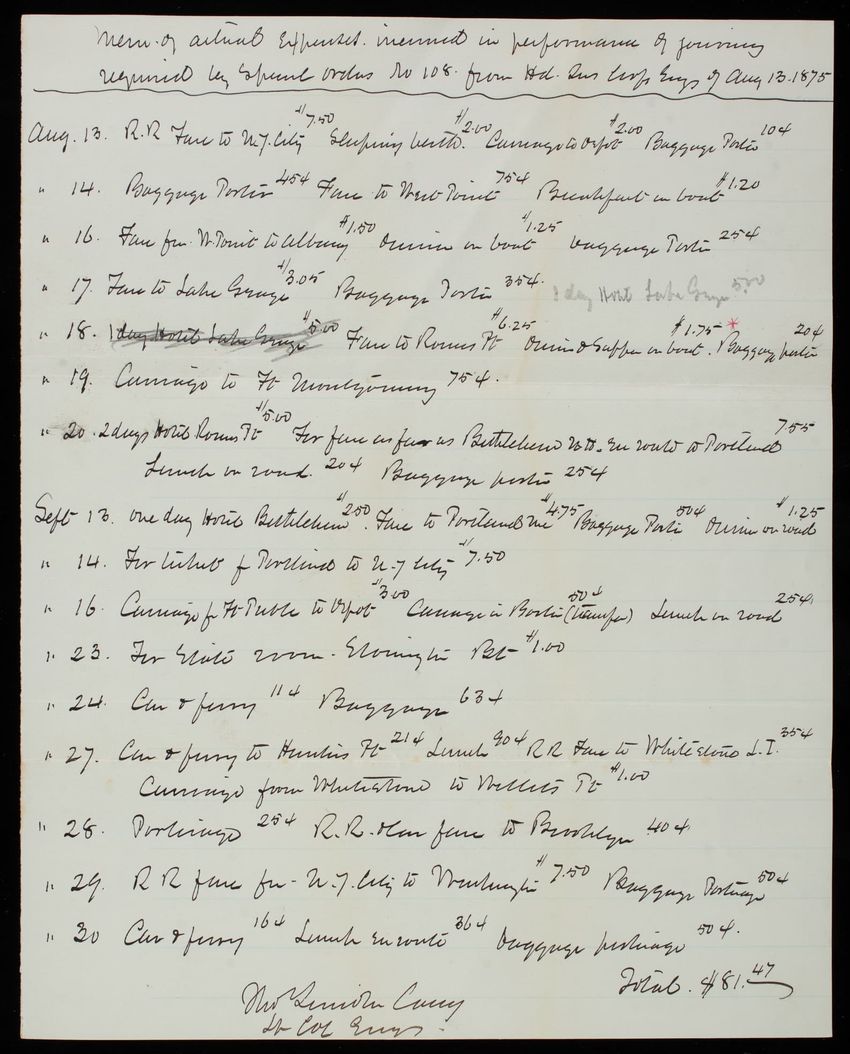 Mem. of actual Expenses. incurred in performance of journey
required by Special orders No 108. from Hd. Qrs Corps Engs of Aug 13. 1875
Aug. 13. R.R Fare to N.Y. City $7.50 Sleeping berth. $2.00 Carriage to Depot $2.00 Baggage Porter 10¢
" 14. Baggage Porter 45¢ Fare to West Point 75¢ Breakfast on boat $1.20
" 16. Fare fm. W. Point to Albany $1.50 Dinner on boat $1.25 baggage Porter 25¢
" 17. Fare to Lake George $3.05 Baggage Porter 35¢. 1 day Hotel Lake George 5.00
" 18. 1 day Hotel Lake George $5.00 Fare to Rouses Pt $6.25 Dinner & Supper on boat. $1.75 * Baggage porter 20¢
" 19. Carriage to Ft Montgomery 75¢.
" 20. 2 days Hotel Rouses Pt $5.00 For fare as far as Bethlehem N.H. en route to Portland 7.55
Lunch on road. 20¢ Baggage porter 25¢
Sept 13. one day Hotel Bethlehem $2.50. Fare to Portland Me $4.75 Baggage Porter 50¢ Dinner on road $1.25
" 14. For ticket f Portland to N-Y City $7.50
" 16. Carriage fr Ft Preble to Depot $3.00 Carriage in Boston (transfer) 50¢ Lunch on road 25¢
" 23. For State room - Stonington Bt- $1.00
" 24. Car & ferry 11¢ Baggage 63¢
" 27. Car & ferry to Hunters Pt 21¢ Lunch 90¢ RR Fare to Whitestone L.I. 35¢
Carriage from Whitestone to Willets Pt $1.00
" 28. Porterage 25¢ R.R. & car fare to Brooklyn 40¢
" 29. R R fare fm - N.Y. City to Washington $7.50 Baggage Porterage 50¢
" 30 Car & ferry 16¢ Lunch en route 36¢ baggage porterage 50¢.
Total. $81.47
Thos Lincoln Casey
Lt Col Engs.